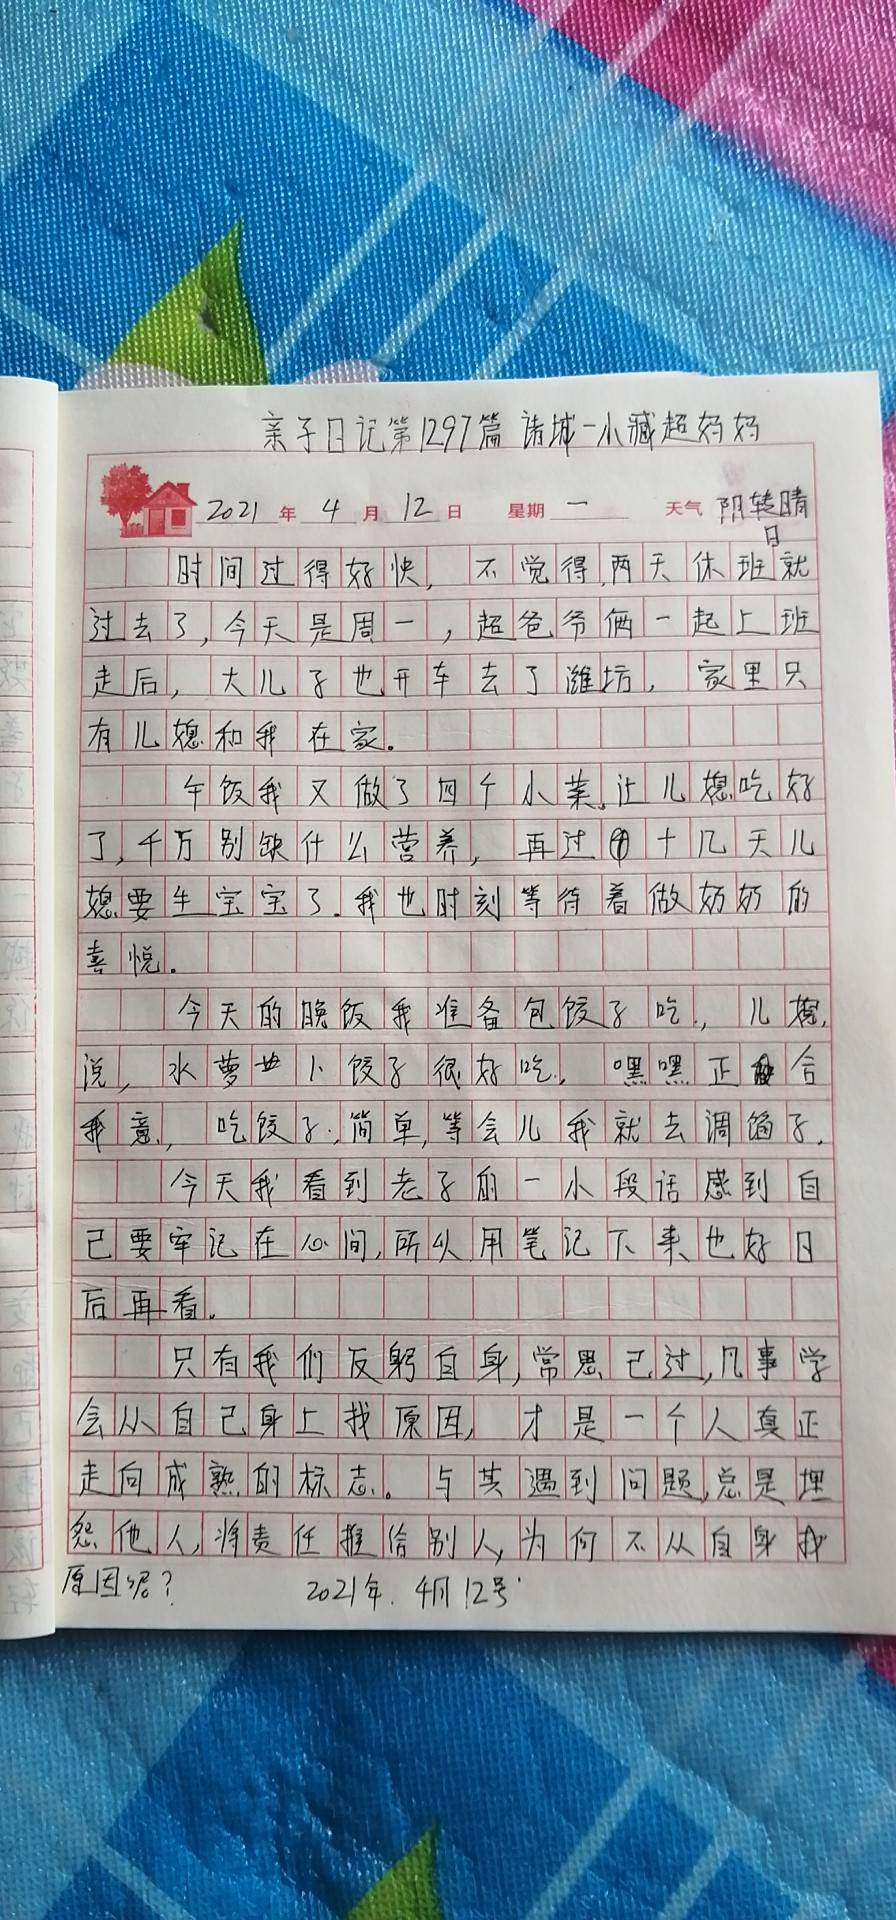 亲子日记第1297篇 诸城一小臧超妈妈
2021年4月12日 星期一 天气 阴转晴
日
时间过得好快，不觉得，两天休班就
过去了，今天是周一，超爸爷俩一起上班
走后，大儿子也开车去了潍坊，家里只
有儿媳和我在家。
午饭我又做了四个小菜，让儿媳吃好
了，千万别缺什么营养，再过十几天儿
媳要生宝宝了。我也时刻等待着做奶奶的
喜悦。
今天的晚饭我准备包饺子吃，儿媳，
说，水萝卜饺子很好吃，嘿嘿正合
我意，吃饺子，简单，等会儿我就去调馅子，
今天我看到老子的一小段话感到自
己要牢记在心间，所以用笔记下来也好日
后再看。
只有我们反躬自身，常思己过，凡事学
会从自己身上找原因，才是一个人真正
走向成熟的标志。与其遇到问题，总是埋
怨他人，将责任推给别人，为何不从自身找
原因呢？ 2021年.4月12号